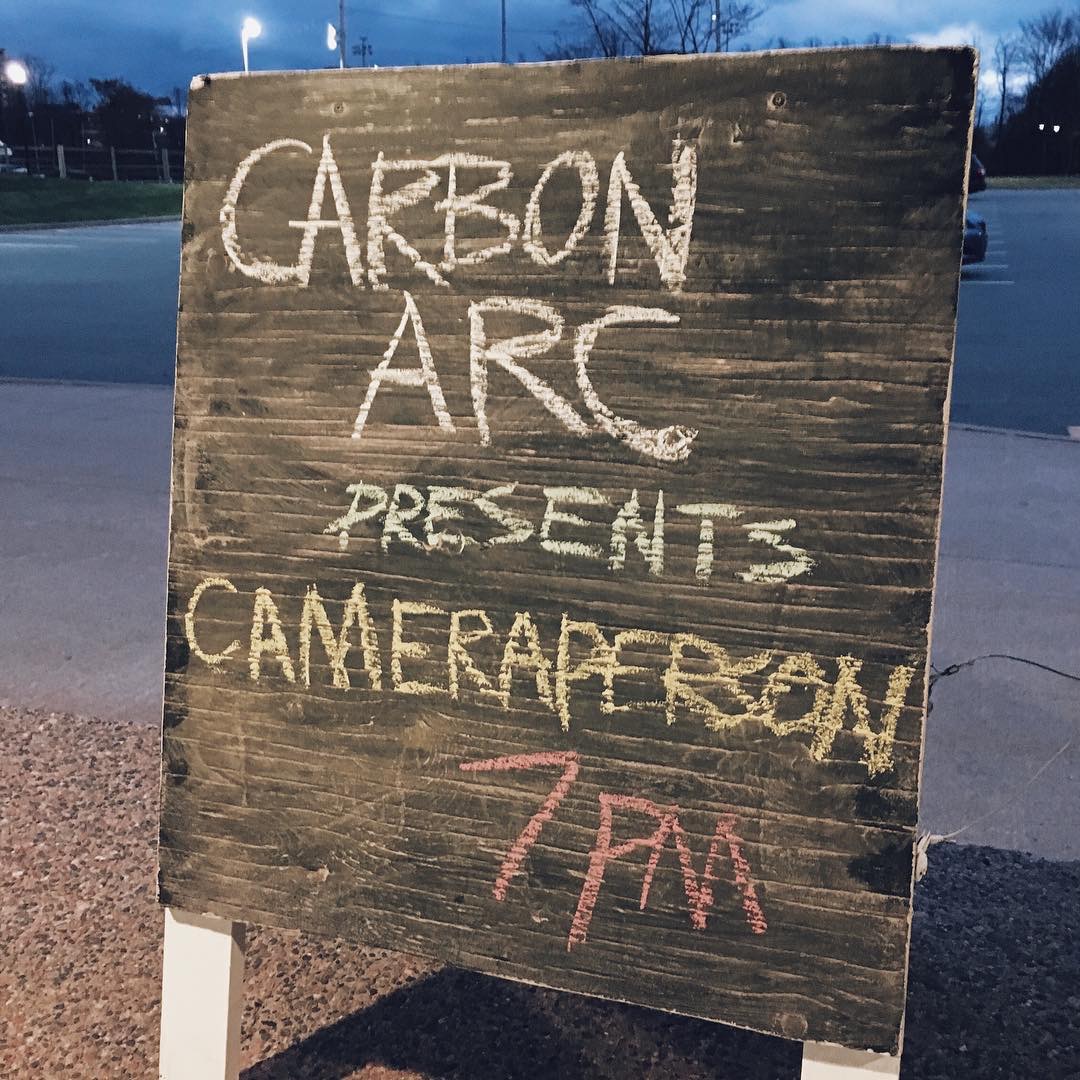 CARBON
ARC
PRESENTS
CAMERAPERSON
7PM